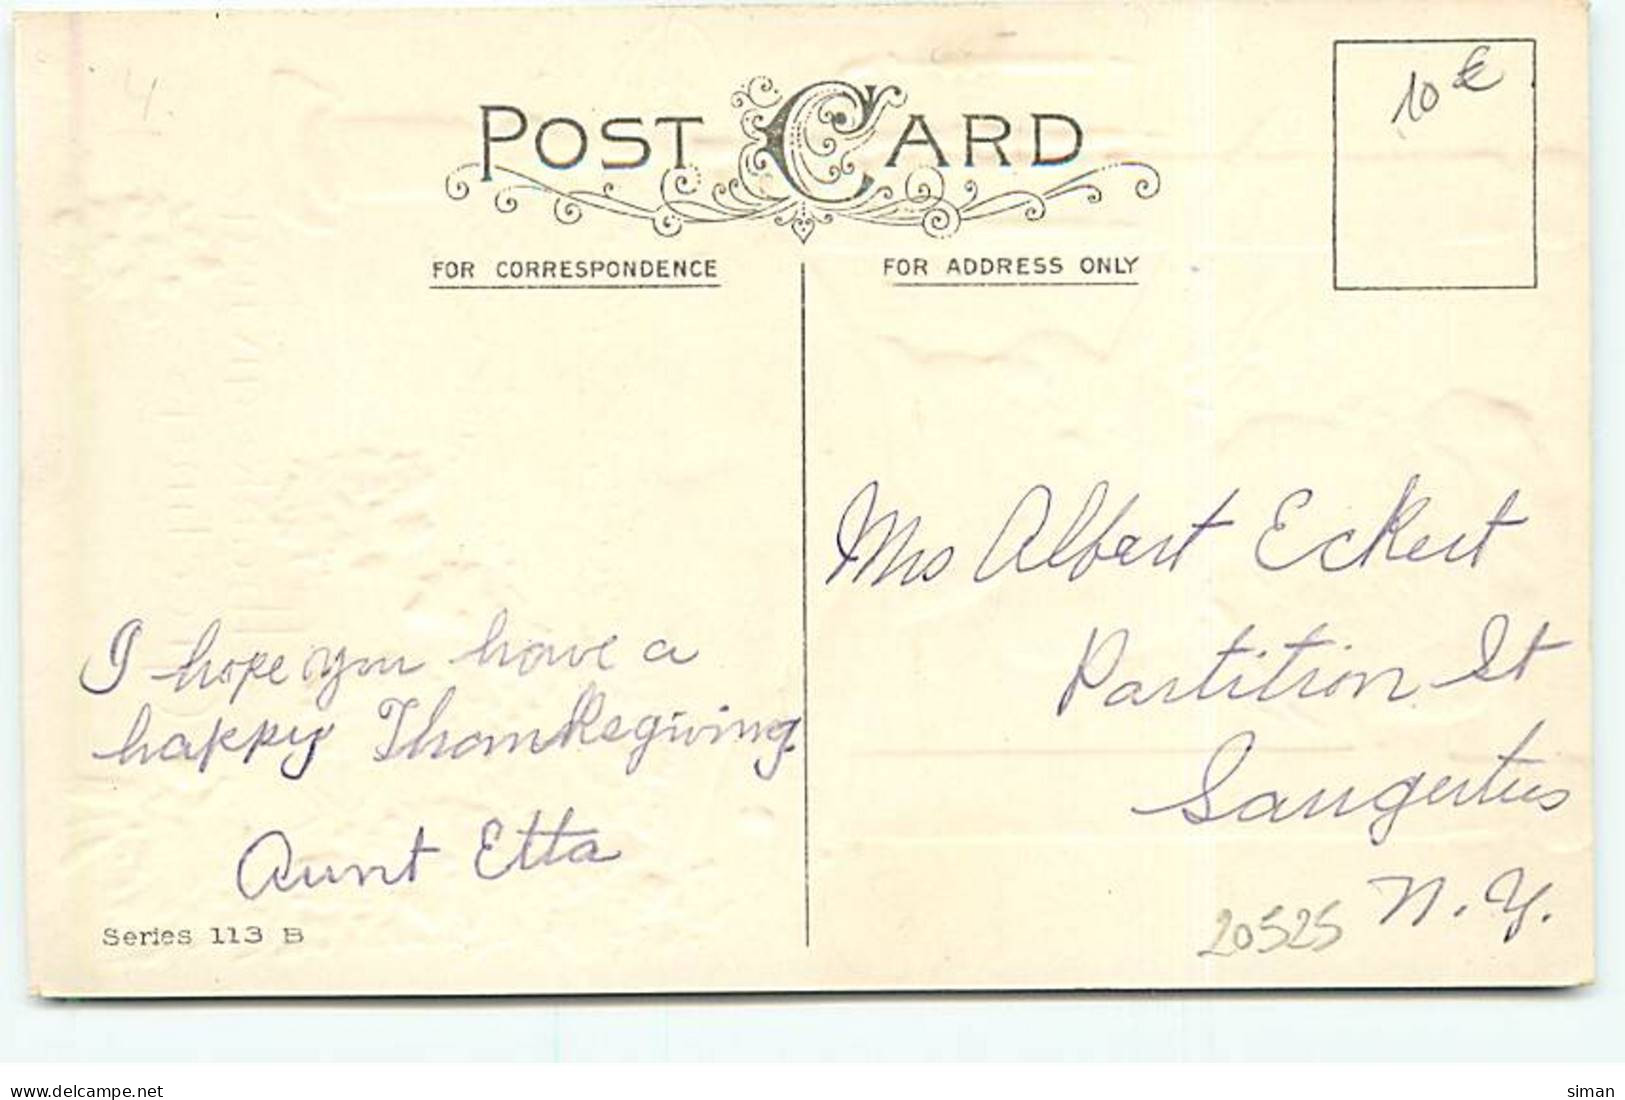 POST CARD
10 €
4
FOR CORRESPONDENCE
FOR ADDRESS ONLY
I hope you have a
happy Thanksgiving.
Aunt Etta
Series 113 B
Mrs Albert Eckert
Partition St
Saugerties
N.Y.
20525
www.delcampe.net
siman